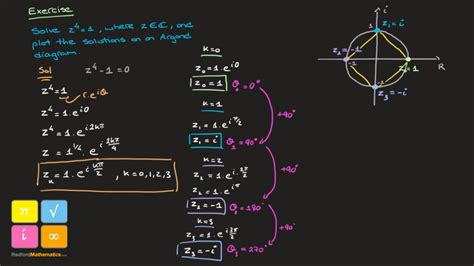 Exercise
Solve z⁴=1, where z∈ℂ, and
plot the solutions on an Argand
diagram.
Sol z⁴-1=0
z⁴=1 r.e^{iθ}
z⁴=1.e^{i0}
z⁴=1.e^{i2kπ}
z=1^{1/4}.e^{i2kπ/4}
z_k=1.e^{i kπ/2}, k=0,1,2,3
k=0
z₀=1.e^{i0}
z₀=1 θ₀=0°
+90°
k=1
z₁=1.e^{iπ/2}
z₁=i θ₁=90°
+90°
k=2
z₂=-1 θ₂=180°
+90°
k=3
z₃=-i θ₃=270°
i
z₁=i
1
z₂=-1
z₀=1
-1
1
R
-1
z₃=-i
π √
i ∞
RadfordMathematics.com